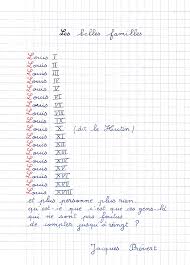 Les belles familles
Louis I
Louis II
Louis III
Louis IV
Louis V
Louis VI
Louis VII
Louis VIII
Louis IX
Louis X (dit le Hutin)
Louis XI
Louis XII
Louis XIII
Louis XIV
Louis XV
Louis XVI
Louis XVIII
et plus personne plus rien...
qu'est-ce que c'est que ces gens-là
qui ne sont pas foutus
de compter jusqu'à vingt ?
Jacques Prévert